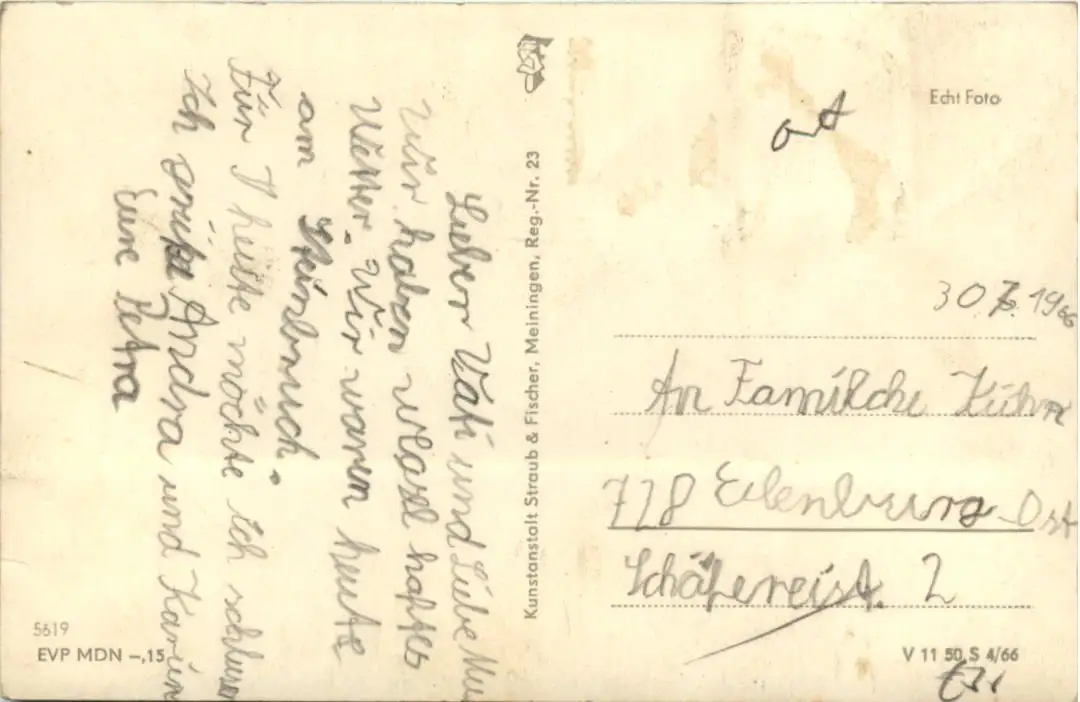 Lieber Vati und Liebe Mu
Wir haben
Wetter. Wir waren heute
am Steinbruch.
Für heute möchte ich
Ich grüße Andra und Karin
Eure Petra
Kunstanstalt Straub & Fischer, Meiningen, Reg.-Nr. 23
5619
EVP MDN –,15
Echt Foto
30.7.1966
An Familche
728 Eilenburg-Ost
Schäfereist. 2
V 11 50 S 4/66